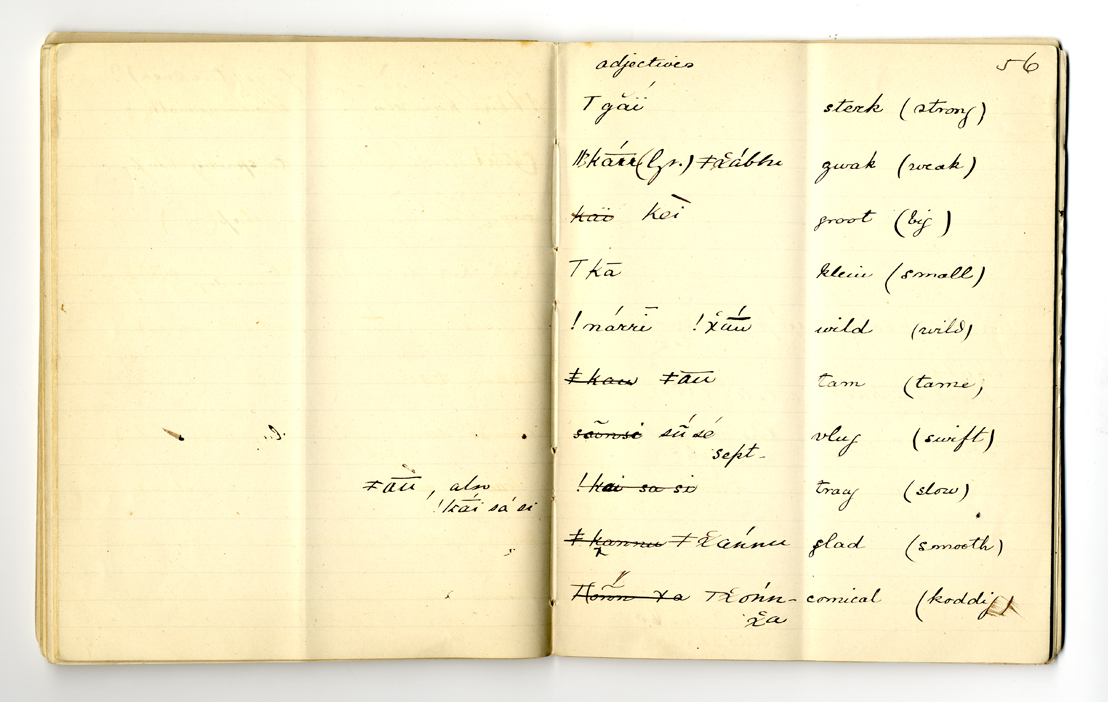 ǂāū, also
!kā́í sá si
adjectives 56
T gǎí̈ sterk (strong)
kā́rr (Gr.) ǂx̌ábbu zwak (weak)
käī kèi groot (big)
T kā klein (small)
!nárrī !x̌ā́ū wild (wild)
ǂkau ǂāū tam (tame)
sāōnsi sū́sé vlug (swift)
sept.
!kai sa si traag (slow)
ǂkannu ǂx̌ánnu glad (smooth)
xa Tx̌óń̄n- comical (koddig)
x̌a